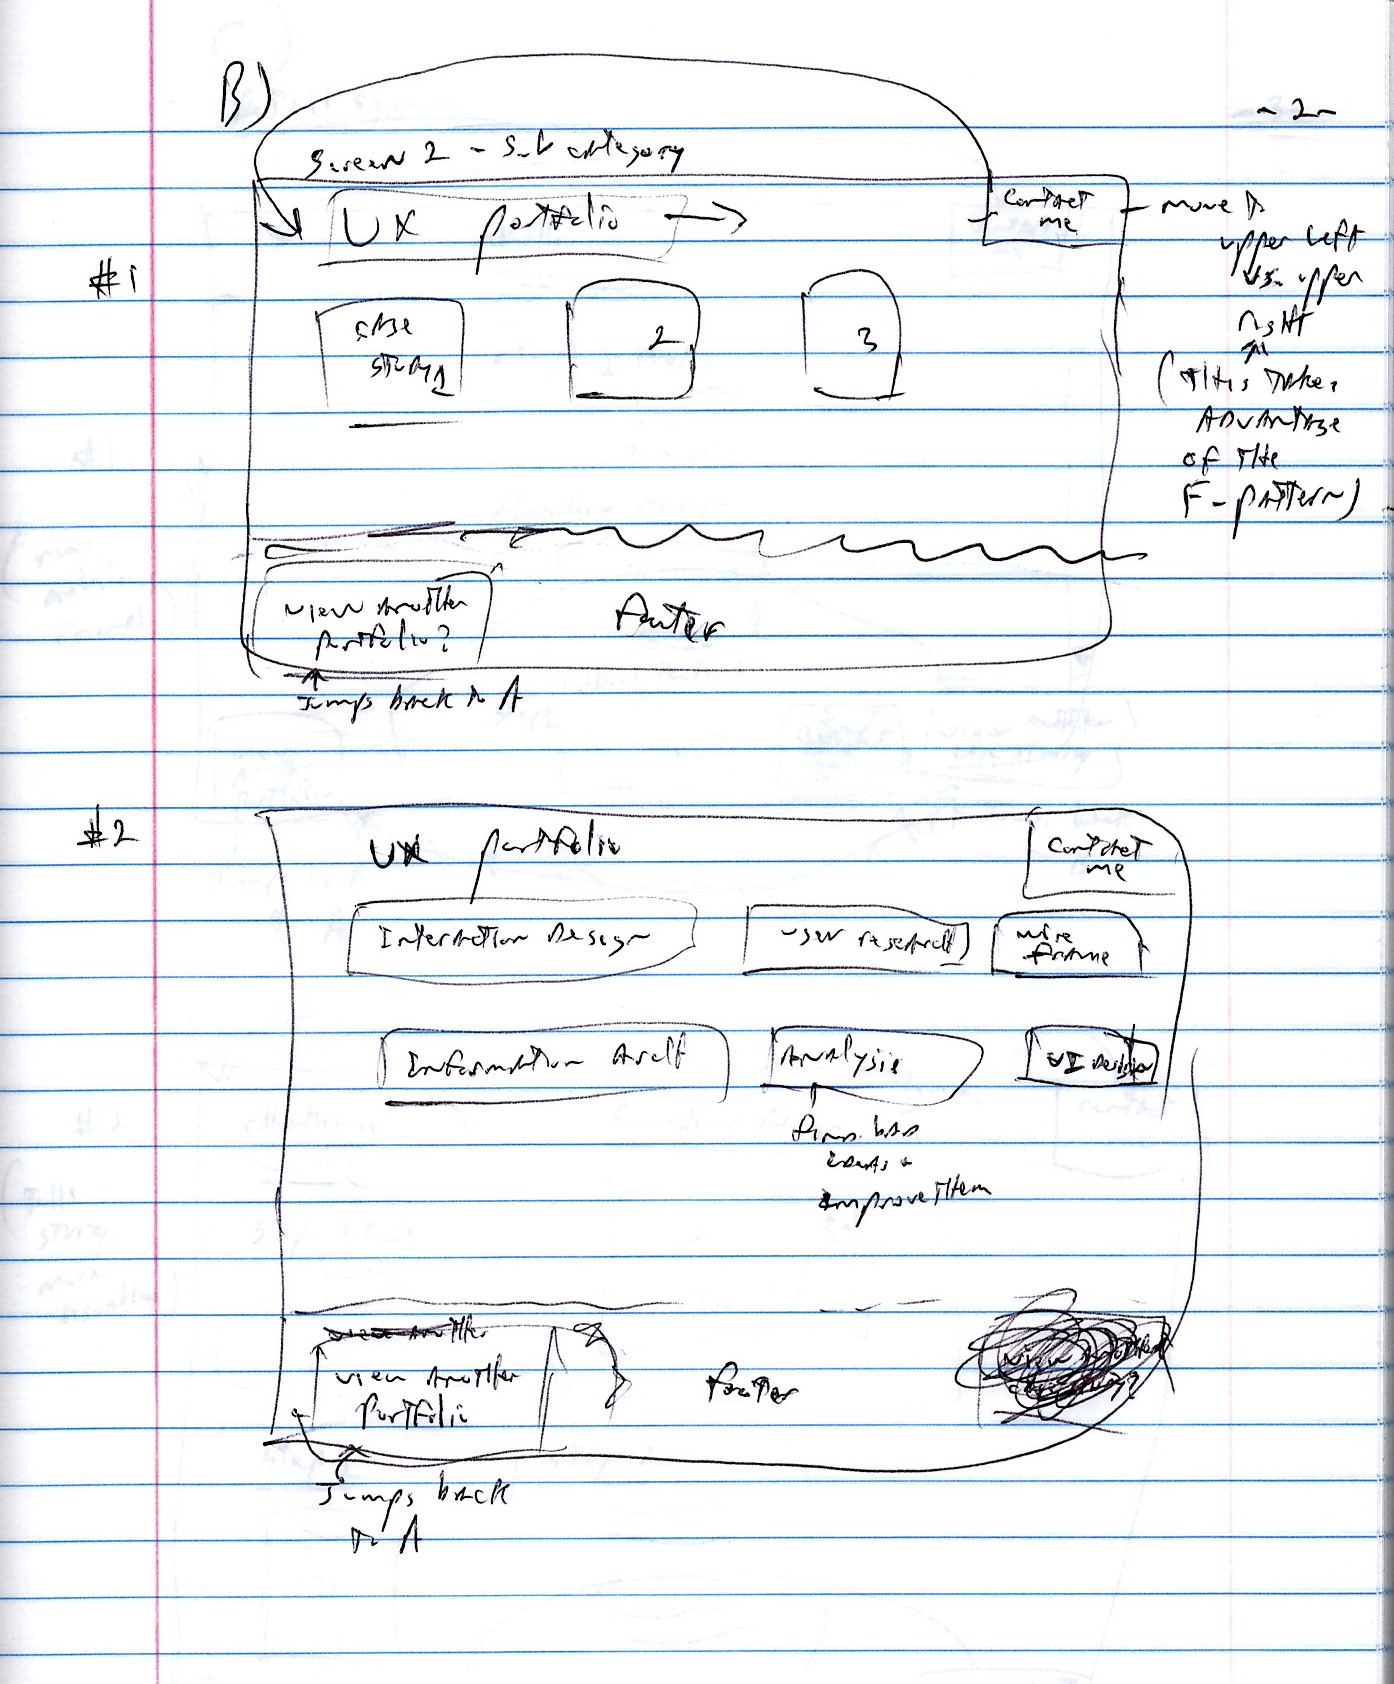 B)
- 2 -
Screen 2 - Sub category
UX portfolio
Contact
me
move to
upper left
vs. upper
right
(This takes
advantage
of the
F-pattern)
#1
case
study 1
2
3
view another
portfolio?
footer
Jumps back to A
#2
UX portfolio
Contact
me
Interaction Design
user research
wire
frame
Information Arch
Analysis
UI Design
improve them
view another
view another
portfolio
footer
Jumps back
to A